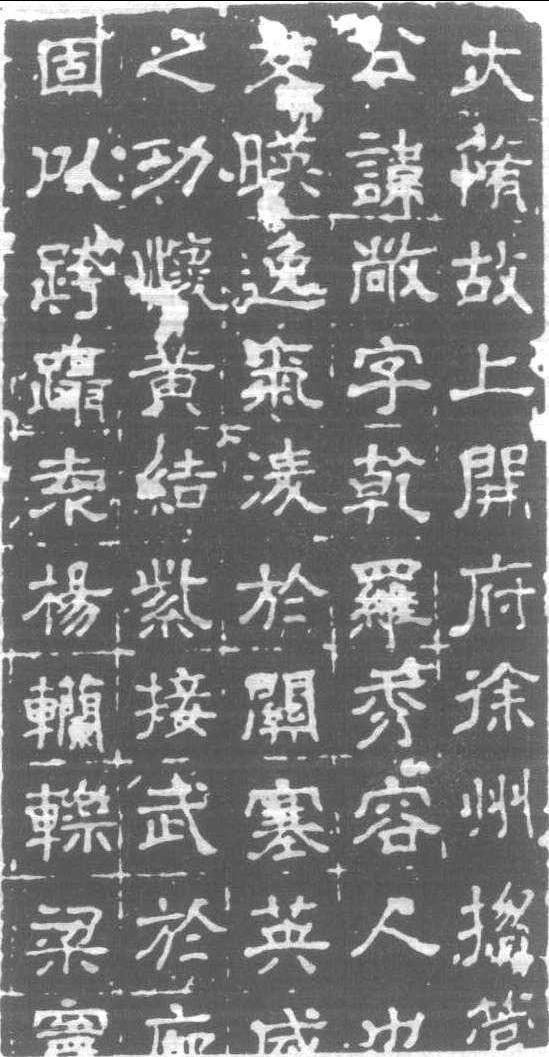 大隋故上開府徐州揔管
公諱敞字乾羅秀容人也
暎逸氣淩於關塞英威
之功懷黃結紫接武於廊
固以跨躡袁楊轥轢梁竇